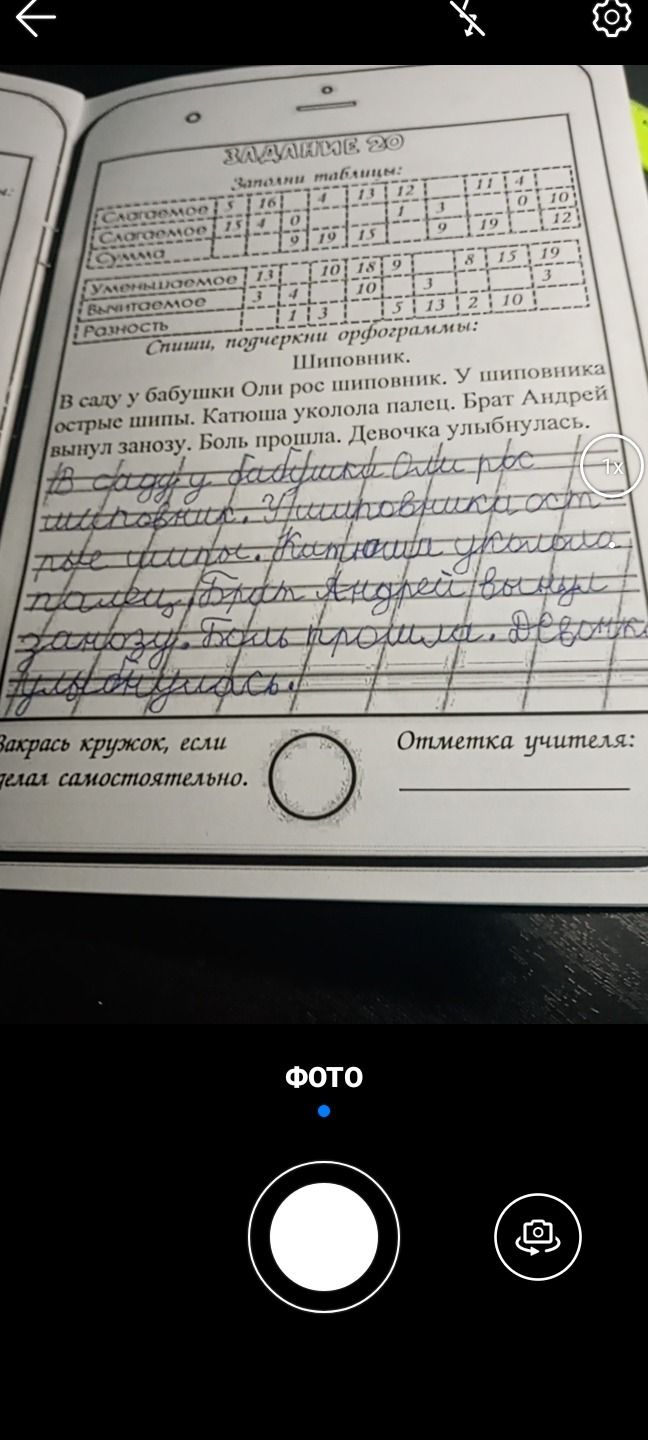 ЗАДАНИЕ 20
Заполни таблицы:
Слагаемое 5 16 4 13 12 11 4
Слагаемое 15 4 0 1 3 0 10
Сумма 9 19 15 9 19 12
Уменьшаемое 13 10 18 9 8 15 19
Вычитаемое 3 4 10 3 3
Разность 1 3 5 13 2 10
Спиши, подчеркни орфограммы:
Шиповник.
В саду у бабушки Оли рос шиповник. У шиповника
острые шипы. Катюша уколола палец. Брат Андрей
вынул занозу. Боль прошла. Девочка улыбнулась.
В саду у бабушки Оли рос
шиповник. У шиповника ост-
рые шипы. Катюша уколола
палец. Брат Андрей вынул
занозу. Боль прошла. Девочка
улыбнулась.
1x
Закрась кружок, если
делал самостоятельно.
Отметка учителя:
ФОТО